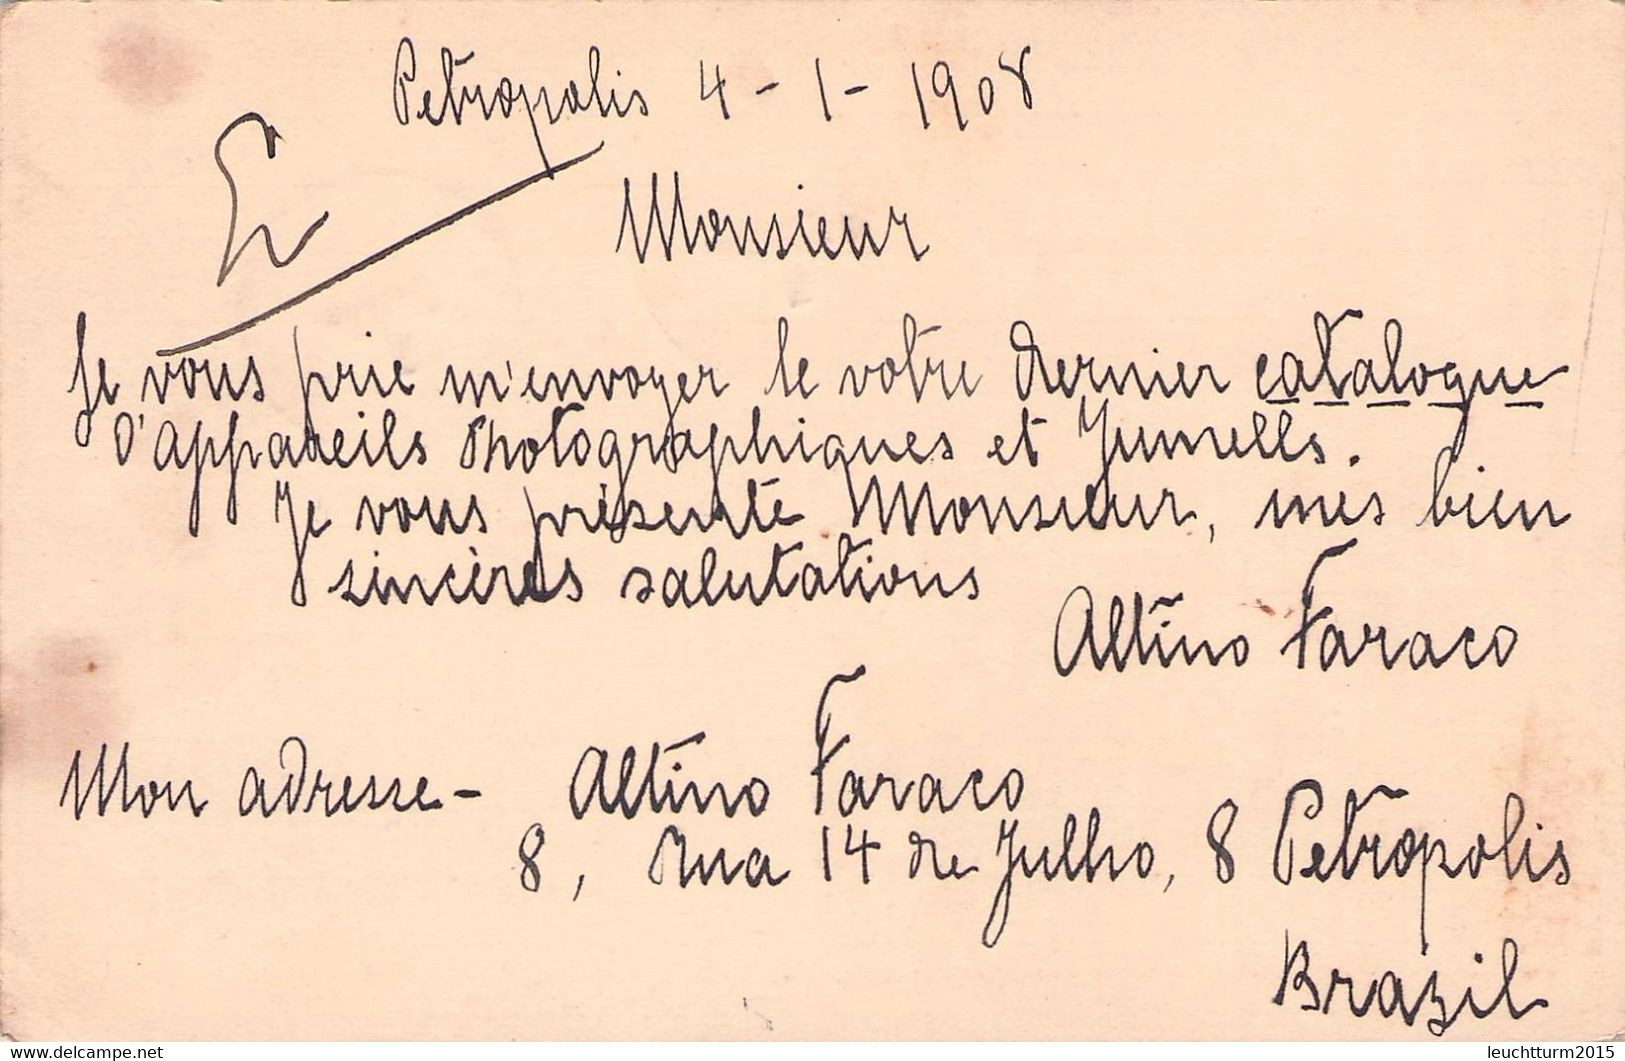 Petropolis 4 - 1 - 1908
Monsieur
Je vous prie m'envoyer le votre dernier catalogue
d'appareils Photographiques et Jumells.
Je vous présente Monsieur, mes bien
sincères salutations
Altino Faraco
Mon adresse - Altino Faraco
8, Rua 14 de Julho, 8 Petropolis
Brazil
www.delcampe.net
leuchtturm2015